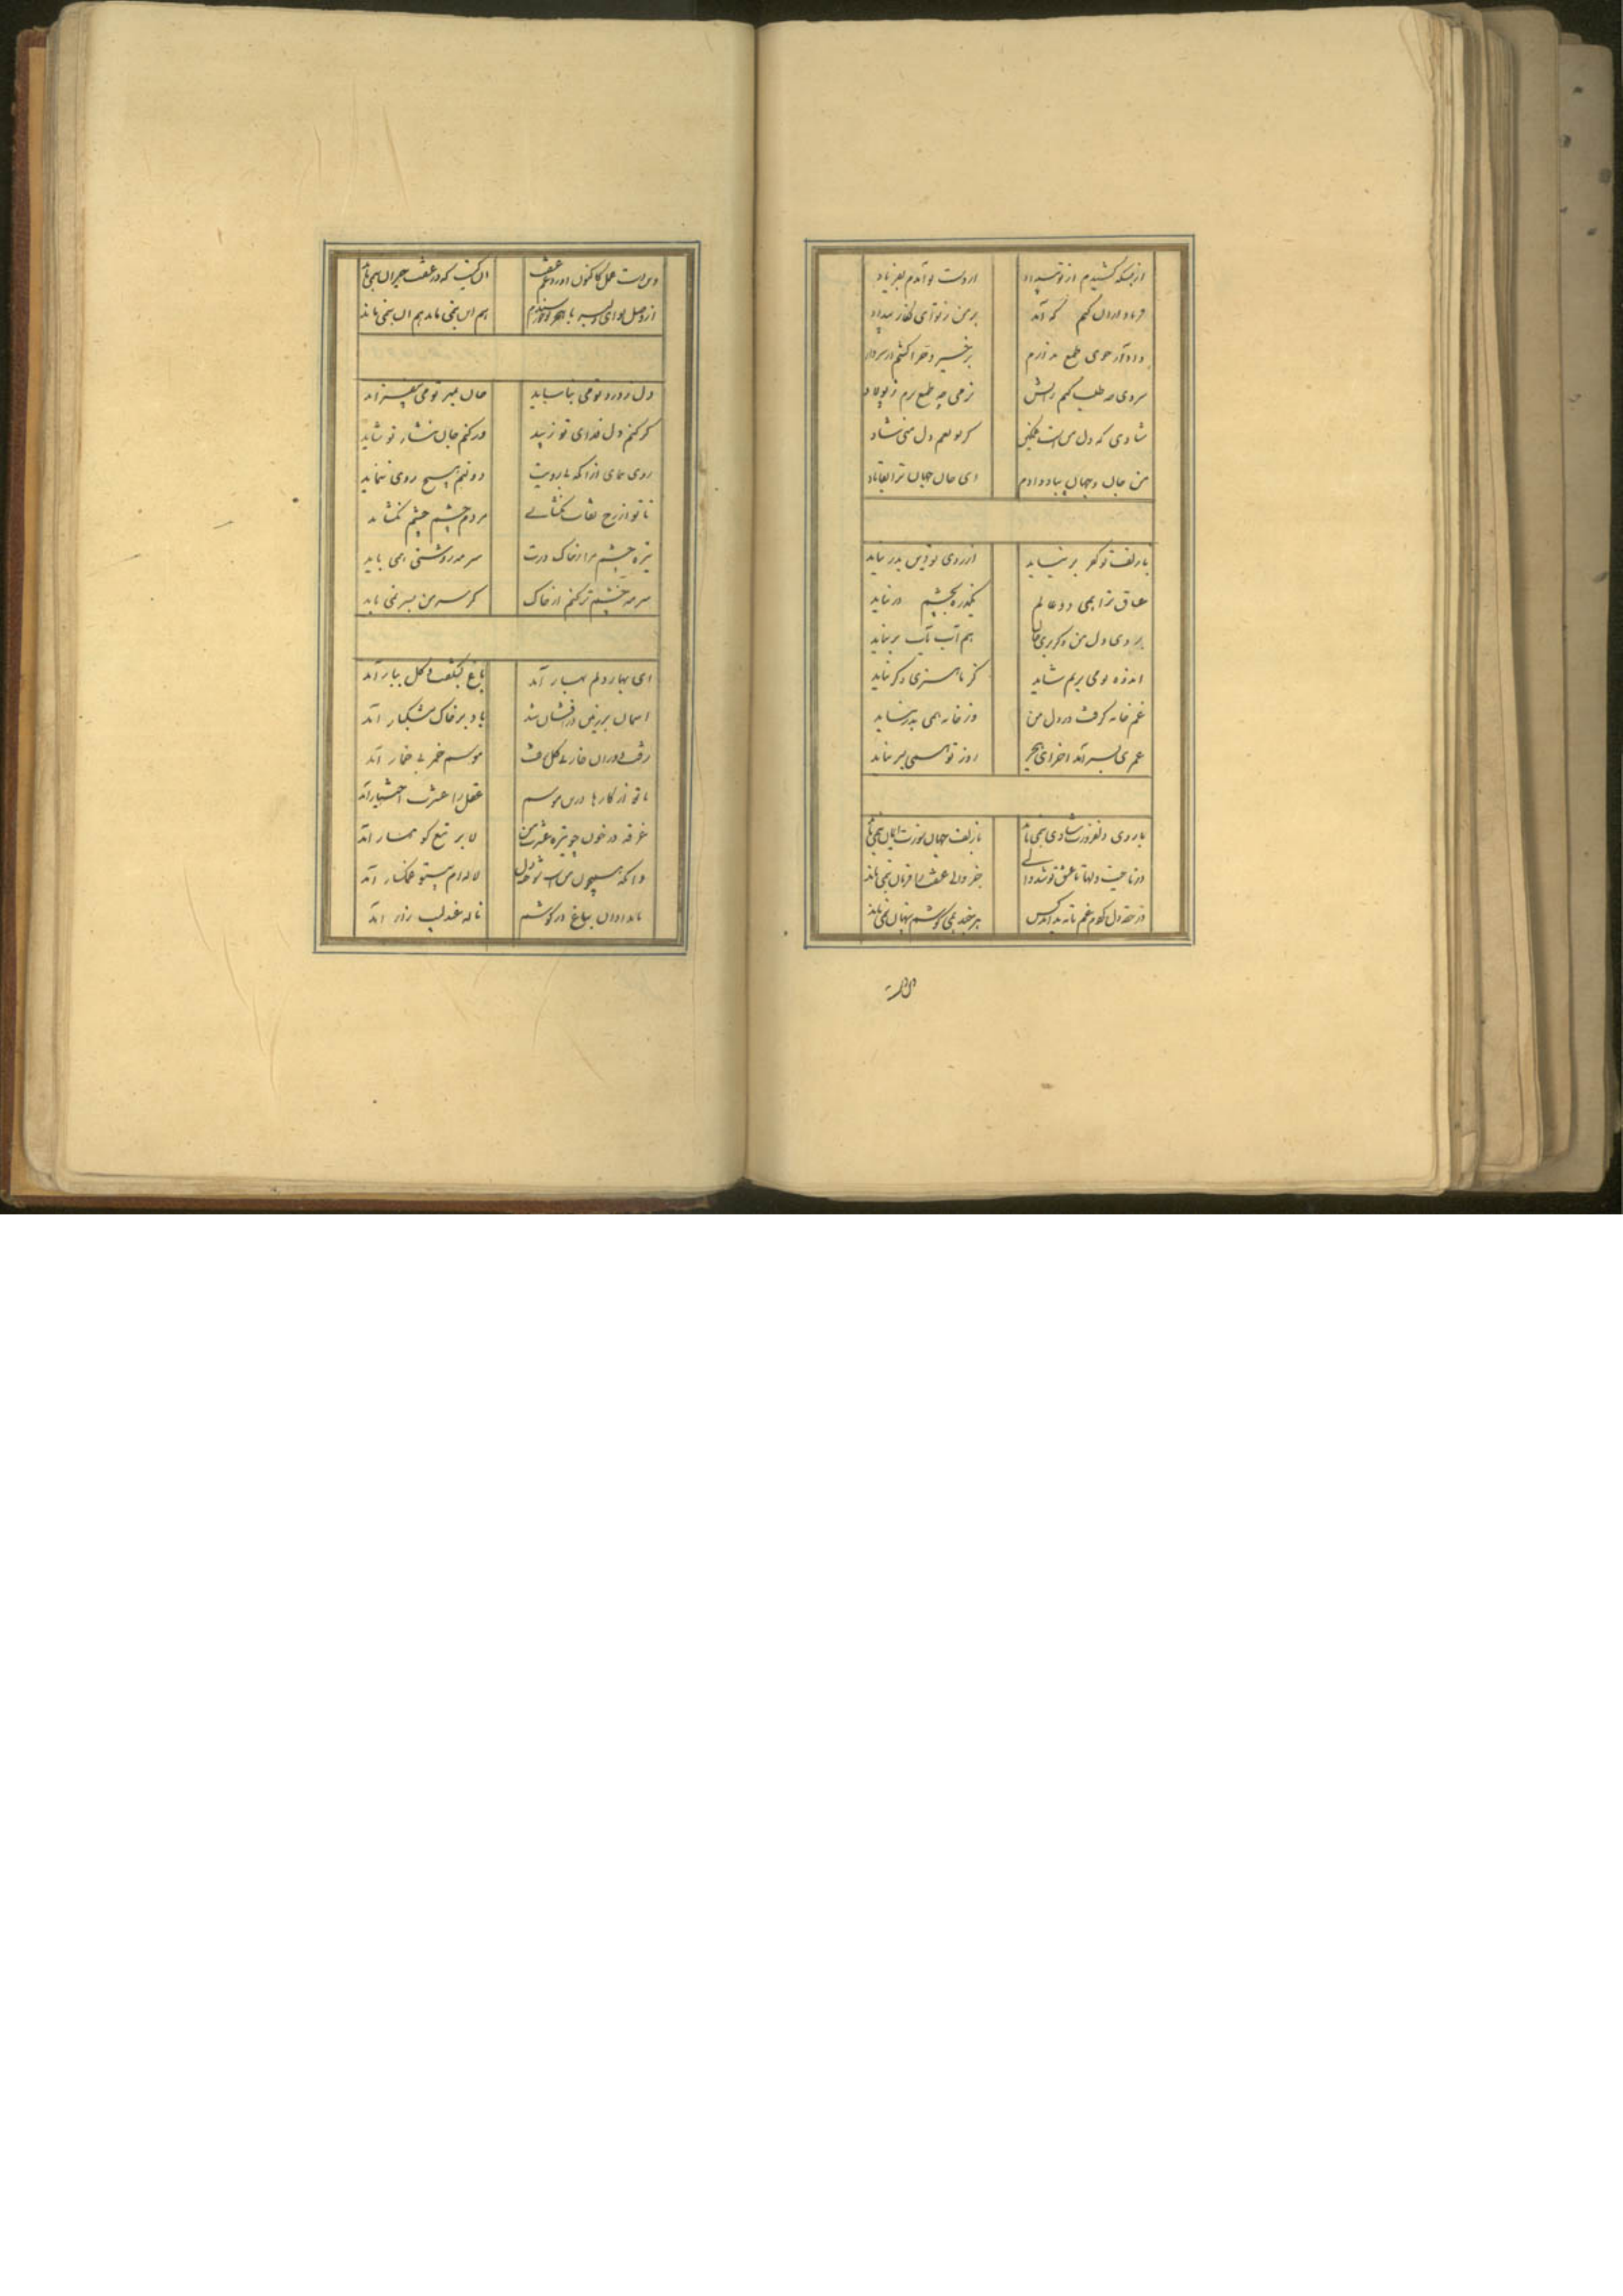 از بسکه کشیدم از تو بیداد از دست تو آمدم بفریاد
فریاد از آن کنم که آمد بر من ز تو ای نگار بیداد
داد از جوی طمع ندارم
سردی چه طلب کنم نرمی چه طمع برم ز پولاد
شادی که دل من است غمگین گر تو بغم دل منی شاد
من جان و جهان بباد دادم ای جان جهان ترا بقا باد
با زلف تو کفر بر نیاید از روی تو دین بدر نیاید
عشاق ترا همی دو عالم یکذره بچشم در نیاید
بردی دل من هم آب بر نیاید
اندوه تو می برم شاید کز ما هنری دگر نیاید
غم خانه گرفت در دل من وز خانه همی بدر نیاید
عمری بسر آمد آخر ای هجر روز تو همی بسر نیاید
با روی دلفروزت شادی نمی ماند با زلف جهان سوزت ایمان نمی ماند
در ناحیت دلها تا عشق تو شد والی جز والی عشقت را فرمان نمی ماند
در حقه دل کردم غم تا نه بداند کس هر چند همی کوشم پنهان نمی ماند
این است
این است عمل کاکنون در عشق آن کیست که در عشقت حیران نمی ماند
از وصل تو ای دلبر با هجر تو خرسندم هم این نمی ماند هم آن نمی ماند
دل ز درد تو می نیاساید جان بمهر تو می بیفزاید
گر کنم دل فدای تو زیبد ور کنم جان نثار تو شاید
روی بنمای از آنکه بی رویت دولتم هیچ روی ننماید
تا تو از رخ نقاب نگشائی مردم چشم چشم نگشاید
تیره چشم مرا ز خاک درت سرمه روشنی همی باید
سرمه چشم تر کنم از خاک گر سر من بسر نمی باید
ای بهار دلم بهار آمد باغ بشکفت و گل ببار آمد
آسمان بر زمین در افشان شد باد بر خاک مشکبار آمد
رفت دوران خار بی گل رفت موسم خمر بی خمار آمد
با تو از کارها درین موسم عقل را عشرت اختیار آمد
غرقه در خون چو نیزه لاله بر تیغ کوهسار آمد
سوخته دل لاله ام غمگسار آمد
بامدادان بباغ در گوشم ناله عندلیب زار آمد